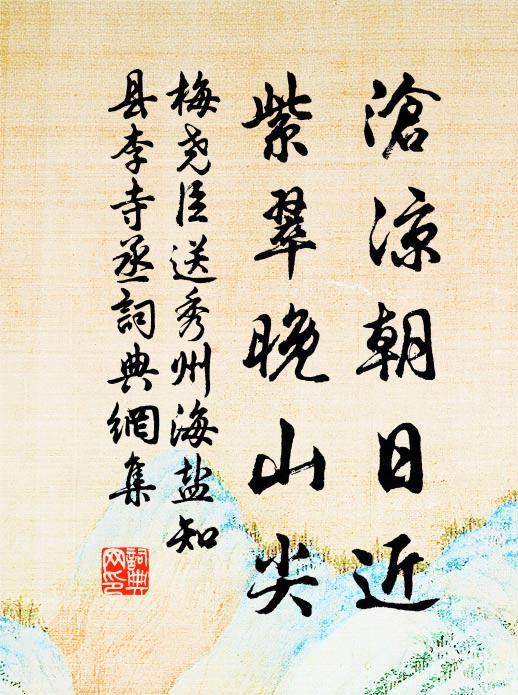 滄凉朝日近
紫翠晚山尖
梅尧臣送秀州海盐知
县李寺丞詞典網集
詞典网印